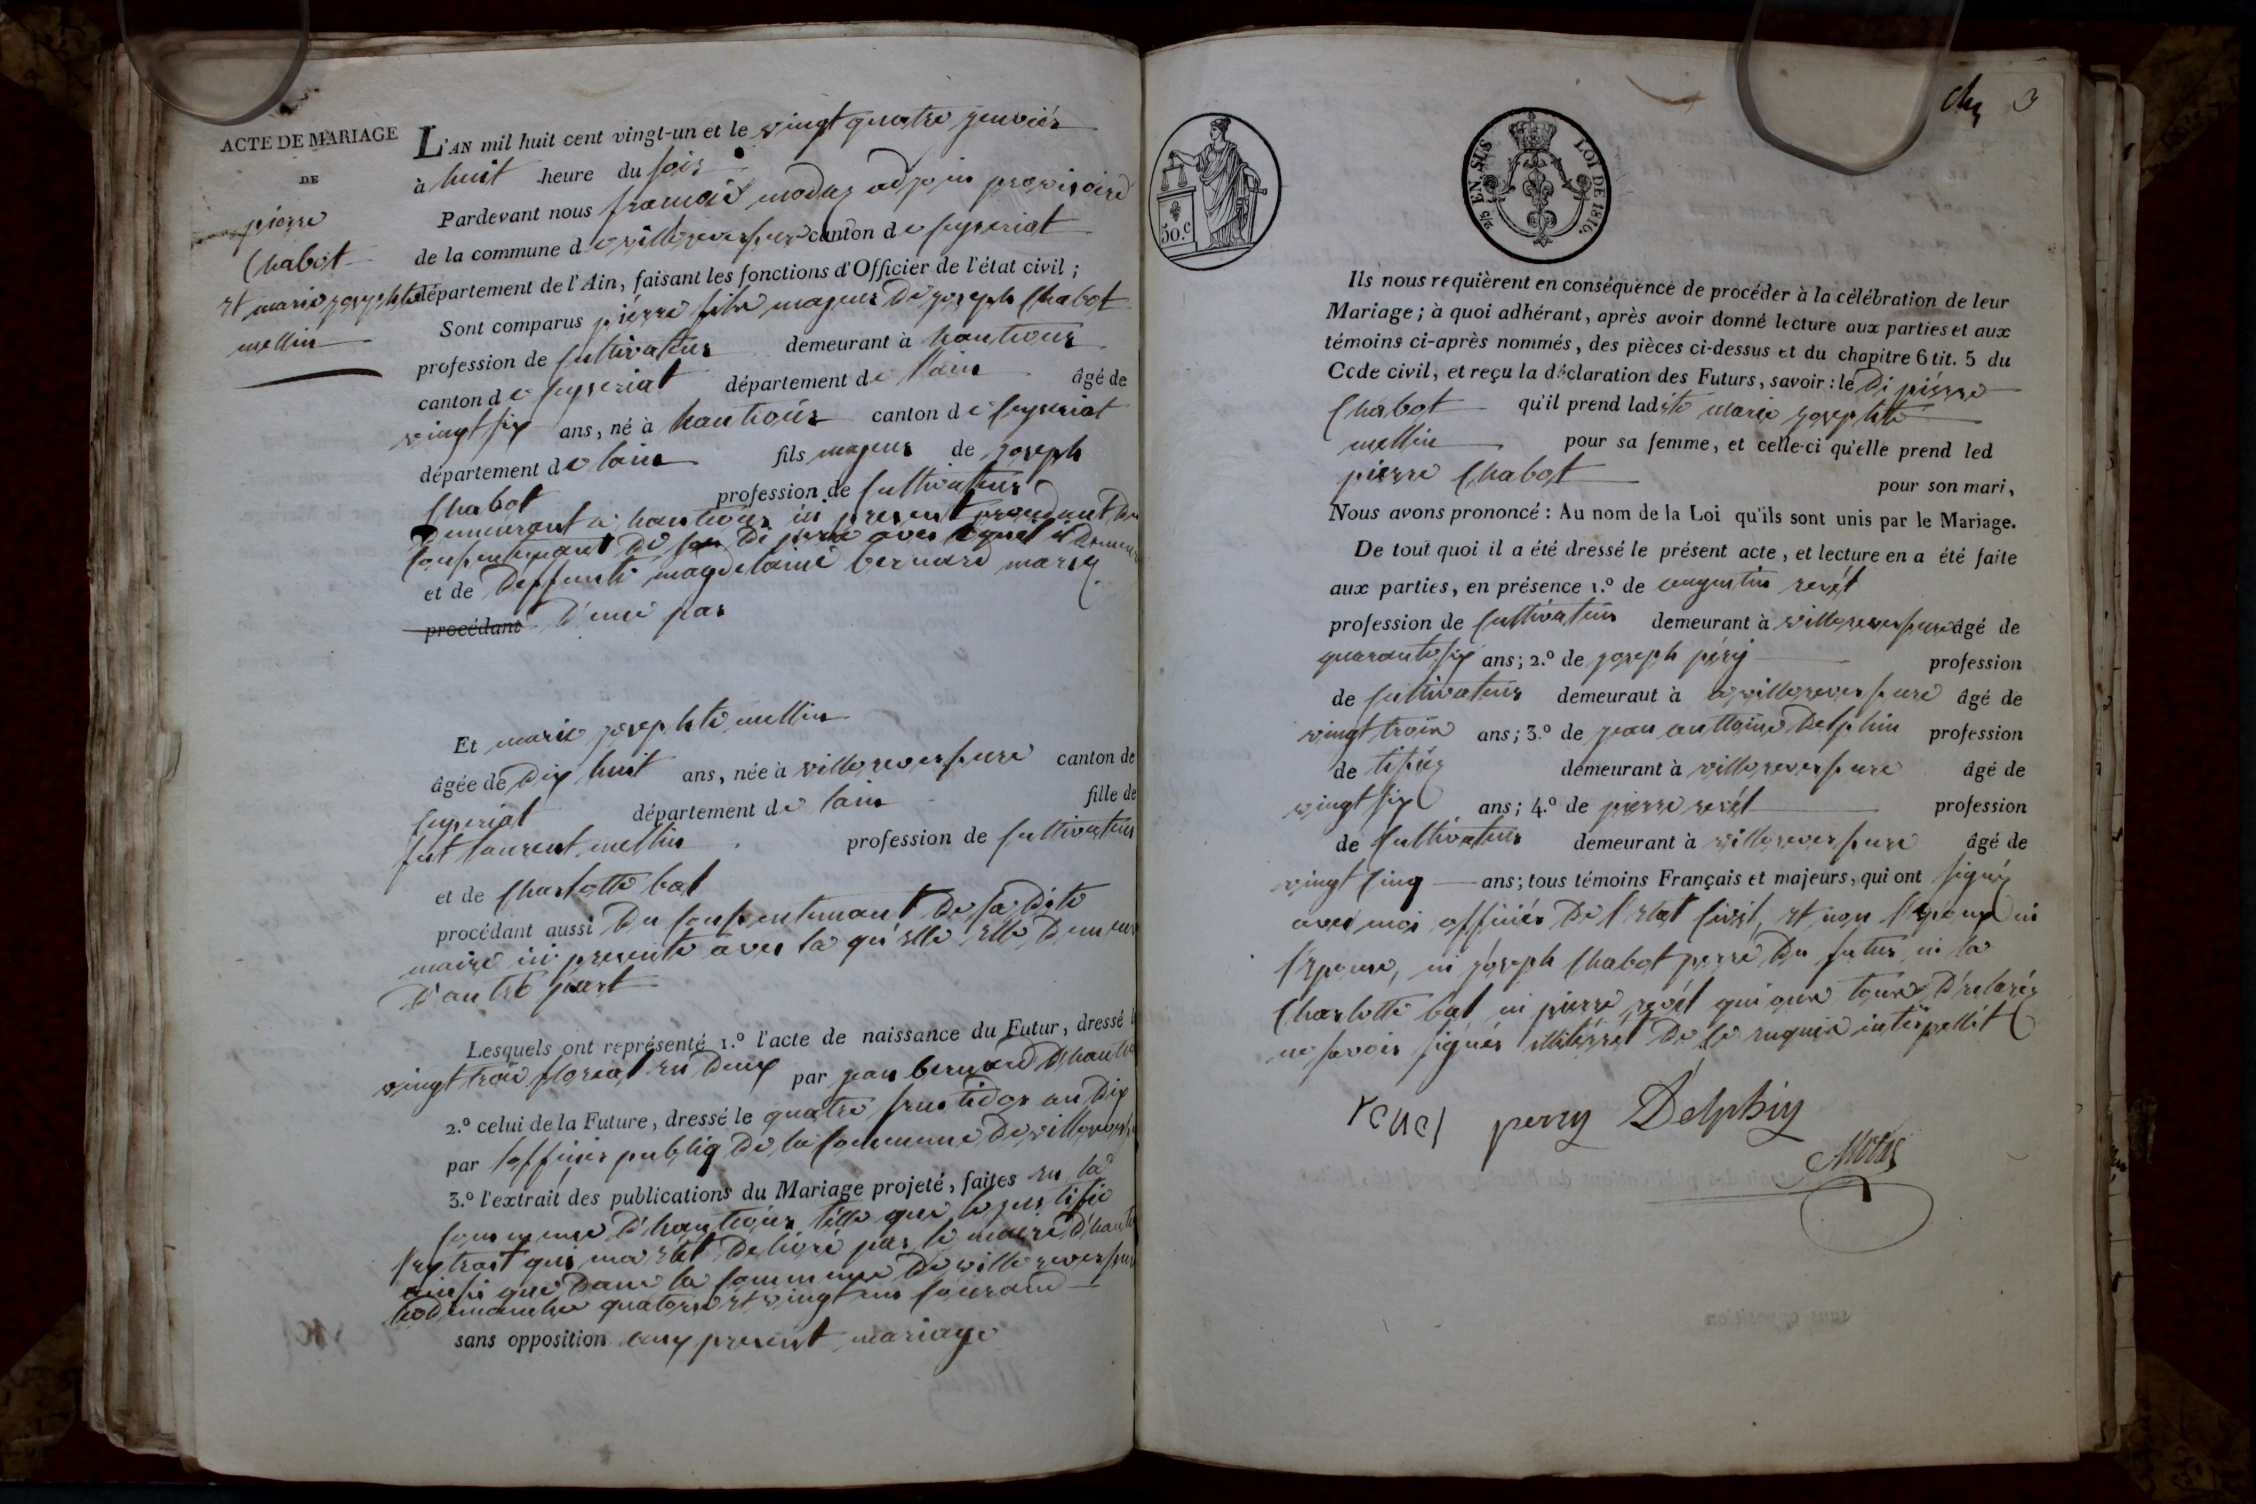 ACTE DE MARIAGE
DE
pierre
Chabot
et marie josephte
mellin
L'AN mil huit cent vingt-un et le vingt quatre janvier
à huit heure du soir
Pardevant nous francois moduz adjoin provisoire
de la commune de villereversure canton de seyseriat
département de l'Ain, faisant les fonctions d'Officier de l'état civil ;
Sont comparus piérre fils majeur De joseph Chabot
profession de Cultivateur demeurant à hautious
canton de seyseriat département de lain âgé de
vingt six ans, né à hautious canton de seyseriat
département de lain fils majeur de joseph
Chabot profession de Cultivateur
Demeurant a hautious ici present
Consentemant De De perre avec lequel il Demeur
et de Deffunte magdelaine bernard mariez
procédant D'une par
Et marie josephte mellin
âgée de Dix huit ans, née à villereversure canton de
seyseriat département de lain fille de
fut laurent mellin profession de Cultivateur
et de Charlotte bal
procédant aussi Du Consentemant De sa Dite
maire ici presente avec la qu'elle elle Demeur
D'autre part
Lesquels ont représenté 1.° l'acte de naissance du Futur, dressé l
vingt trois floreal en Deux par jean bernard D'hautio
2.° celui de la Future, dressé le quatre fructidor an Dix
par loffisier publiq De la Commune De villerevers
3.° l'extrait des publications du Mariage projeté, faites en la
Commune D'hautious telle que le justifie
l'extrait qui ma etet Delivré par le maire D'hauti
ainsi que Dans la Commune De villereversure
les Dimanches quatorze et vingt un Courand
sans opposition aux present mariage
ch 3
50.c
2/5 EN SUS LOI DE 1816.
Ils nous requièrent en conséquence de procéder à la célébration de leur
Mariage ; à quoi adhérant, après avoir donné lecture aux parties et aux
témoins ci-après nommés, des pièces ci-dessus et du chapitre 6 tit. 5 du
Code civil, et reçu la déclaration des Futurs, savoir : le Di piérre
Chabot qu'il prend ladite marie josephte
mellin pour sa femme, et celle-ci qu'elle prend led
pierre Chabot pour son mari,
Nous avons prononcé : Au nom de la Loi qu'ils sont unis par le Mariage.
De tout quoi il a été dressé le présent acte, et lecture en a été faite
aux parties, en présence 1.° de augustin revét
profession de Cultivateur demeurant à villereversure âgé de
quarante six ans ; 2.° de joseph péry profession
de Cultivateur demeuraut à a villereversure âgé de
vingt trois ans ; 3.° de jean anttoine Delphin profession
de tisiér demeurant à villereversure âgé de
vingt six ans ; 4.° de pierre revét profession
de Cultivateur demeurant à villereversure âgé de
vingt Cinq ans ; tous témoins Français et majeurs, qui ont signéz
avec moi officiér De l'etat Civil, et non l'epoux ni
l'epouse, ni joseph Chabot perre Du futur ni la
Charlotte bal ni pierre revét qui ont tous D'eclarér
ne savoir signér illitérét De ce requis interpellét
revel perry Delphin
Moduz